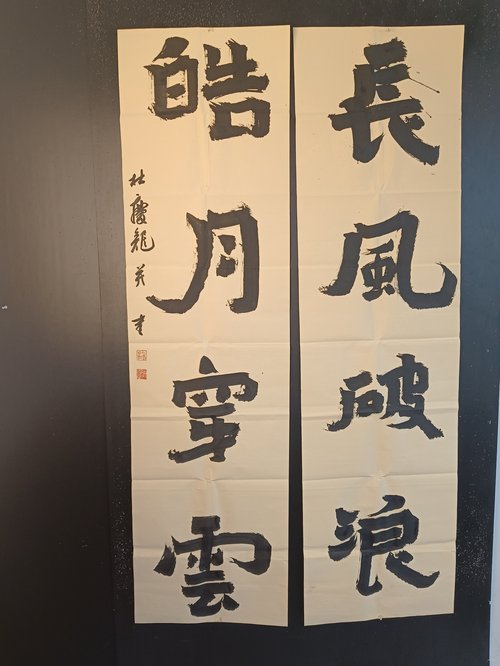 長風破浪
皓月穿雲
杜慶龍
书